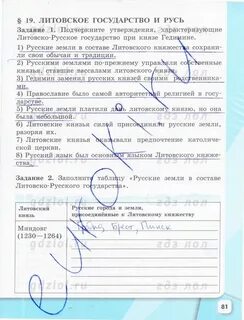 § 19. ЛИТОВСКОЕ ГОСУДАРСТВО И РУСЬ
Задание 1. Подчеркните утверждения, характеризующие
Литовско-Русское государство при князе Гедимине.
1) Русские земли в составе Литовского княжества сохраняли
свои обычаи и традиции.
2) Русскими землями по-прежнему управляли собственные
князья, ставшие вассалами литовского князя.
3) Гедимин заменил русских князей своими
4) Православие было самой авторитетной религией в государстве.
5) Русские земли платили дань литовскому князю, но она
была небольшой.
6) Литовские князья силой присоединили русские земли,
разоряя их.
7) Литовские князья оказывали предпочтение католической
церкви.
8) Русский язык был основным языком Литовского княжества.
Задание 2. Заполните таблицу «Русские земли в составе
Литовско-Русского государства».
Литовский
князь
Русские города и земли,
присоединённые к Литовскому княжеству
Миндовг
(1230—1264)
Брест, Пинск
gdzlol.ru
81